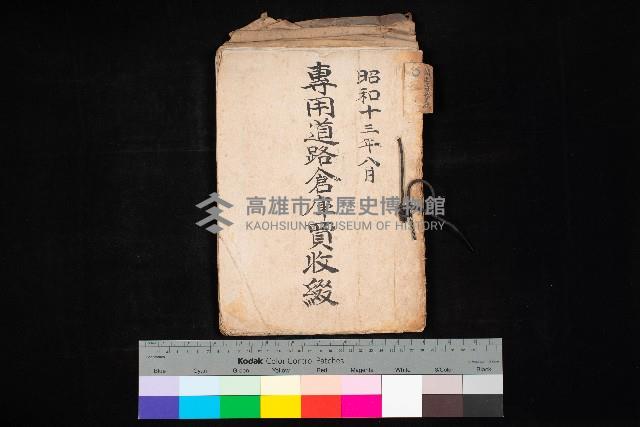 昭和十三年八月
專用道路倉庫買收綴
高雄市立歷史博物館
KAOHSIUNG MUSEUM OF HISTORY
Kodak Color Control Patches
Blue Cyan Green Yellow Red Magenta White 3/Color Black